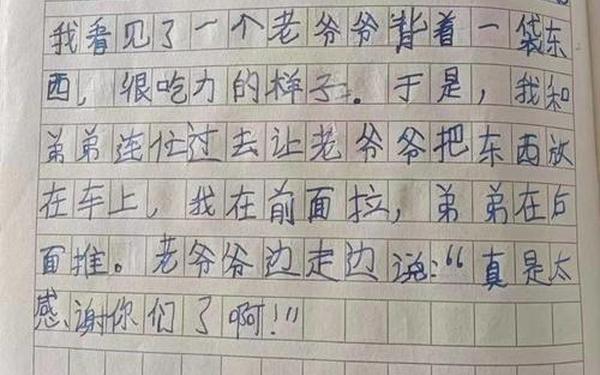 我看见了一个老爷爷背着一袋东
西，很吃力的样子。于是，我和
弟弟连忙过去让老爷爷把东西放
在车上，我在前面拉，弟弟在后
面推。老爷爷边走边说：“真是太
感谢你们了啊！”